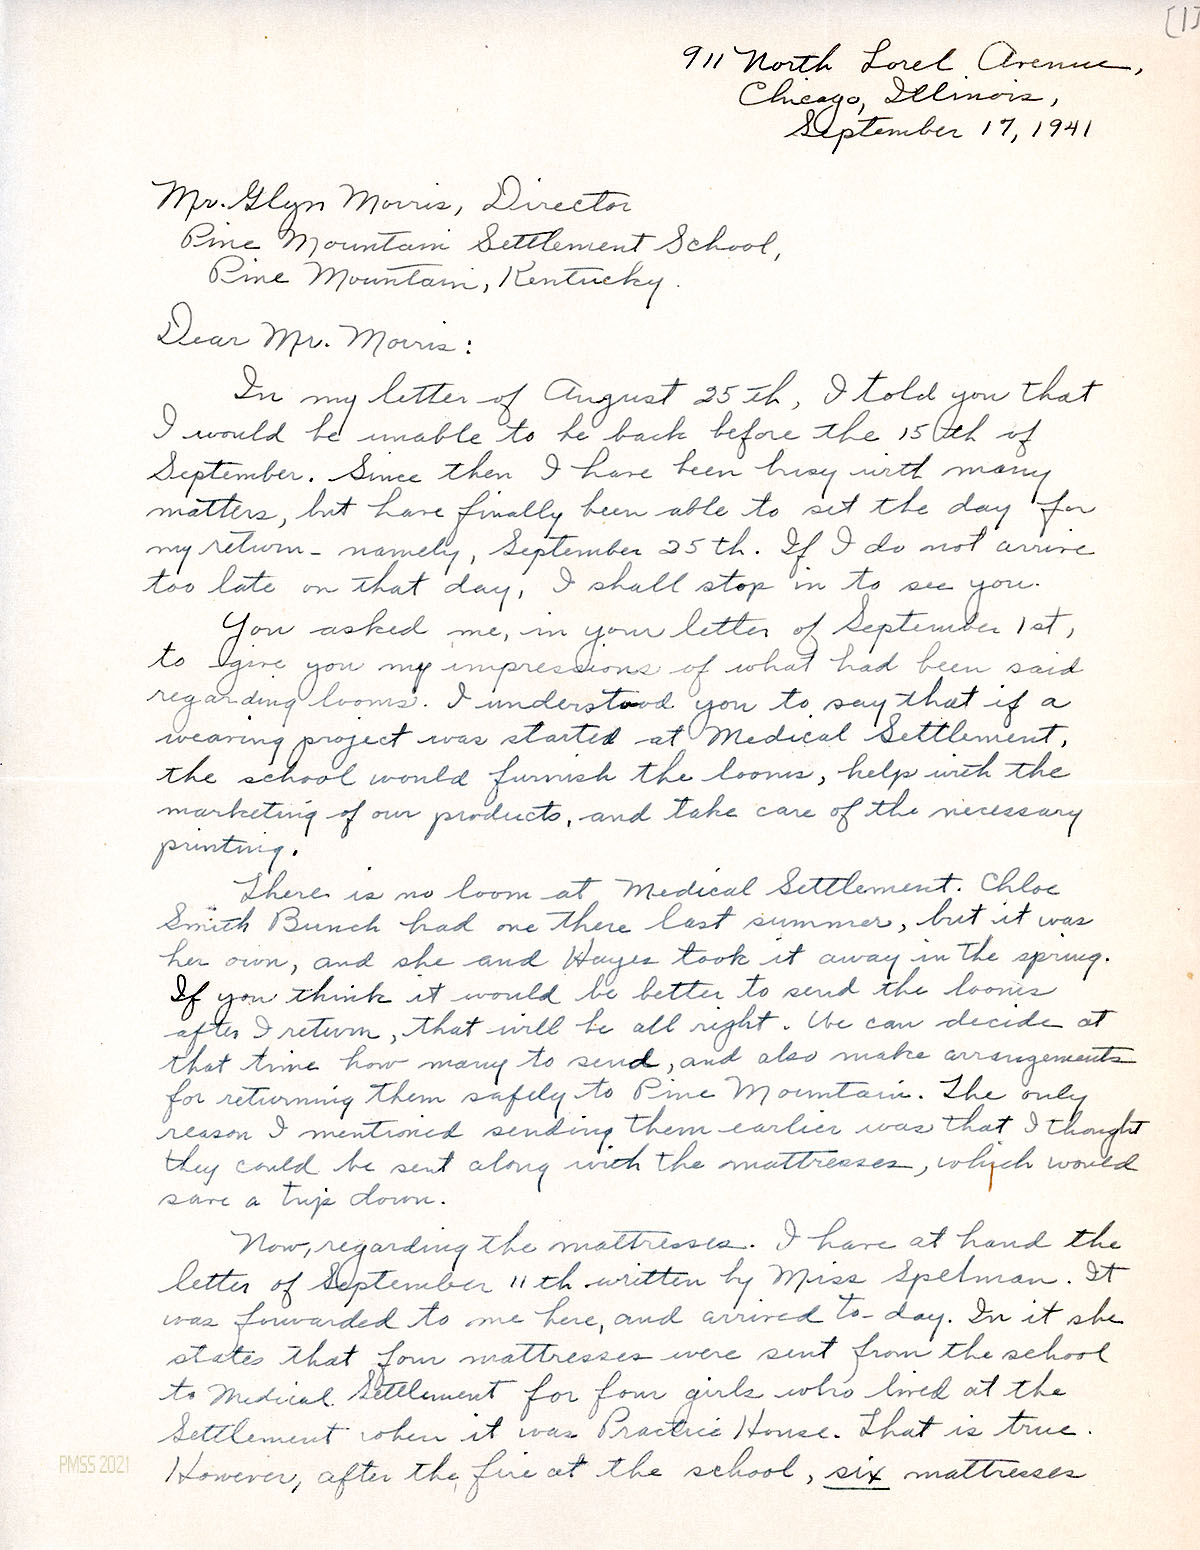 [1]
911 North Lorel Avenue,
Chicago, Illinois,
September 17, 1941
Mr. Glyn Morris, Director
Pine Mountain Settlement School,
Pine Mountain, Kentucky.
Dear Mr. Morris:
In my letter of August 25th, I told you that
I would be unable to be back before the 15th of
September. Since then I have been busy with many
matters, but have finally been able to set the day for
my return - namely, September 25th. If I do not arrive
too late on that day, I shall stop in to see you.
You asked me, in your letter of September 1st,
to give you my impressions of what had been said
regarding looms. I understood you to say that if a
weaving project was started at Medical Settlement,
the school would furnish the looms, help with the
marketing of our products, and take care of the necessary
printing.
There is no loom at Medical Settlement. Chloe
Smith Bunch had one there last summer, but it was
her own, and she and Hayes took it away in the spring.
If you think it would be better to send the looms
after I return, that will be all right. We can decide at
that time how many to send, and also make arrangements
for returning them safely to Pine Mountain. The only
reason I mentioned sending them earlier was that I thought
they could be sent along with the mattresses, which would
save a trip down.
Now, regarding the mattresses. I have at hand the
letter of September 11th written by Miss Spelman. It
was forwarded to me here, and arrived to-day. In it she
states that four mattresses were sent from the school
to Medical Settlement for four girls who lived at the
Settlement when it was Practice House. That is true.
However, after the fire at the school, six mattresses
PMSS 2021